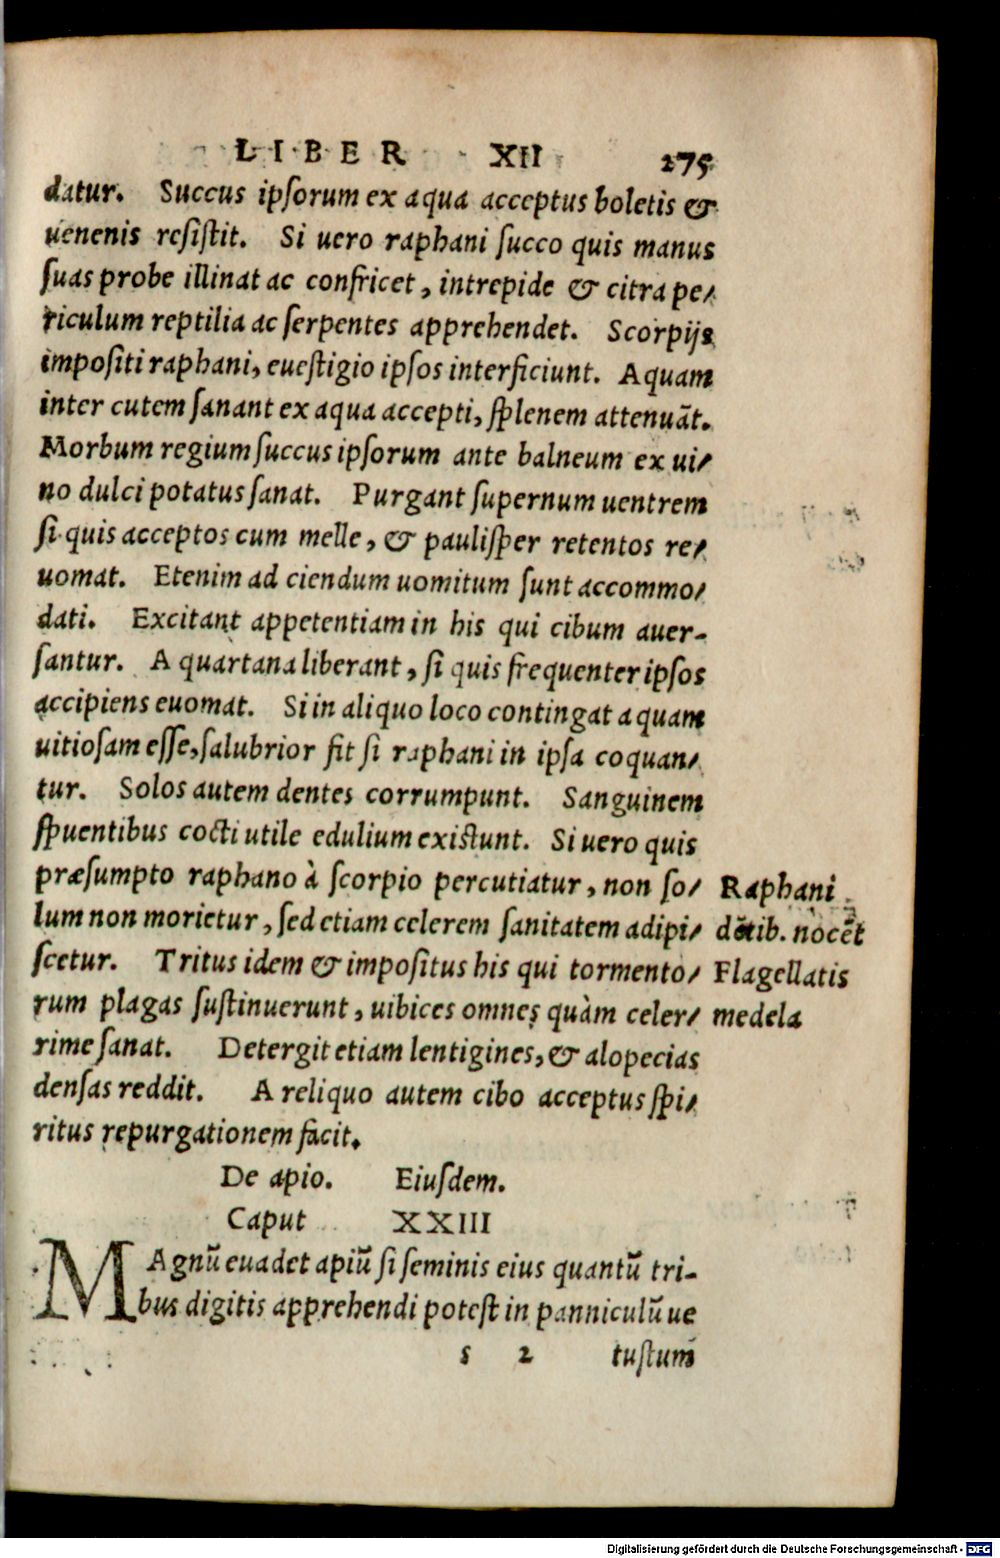 LIBER XII 275
datur. Succus ipſorum ex aqua acceptus boletis &
uenenis reſiſtit. Si uero raphani ſucco quis manus
ſuas probe illinat ac confricet, intrepide & citra pe/
riculum reptilia ac ſerpentes apprehendet. Scorpijs
impoſiti raphani, eueſtigio ipſos interficiunt. Aquam
inter cutem ſanant ex aqua accepti, ſplenem attenuãt.
Morbum regium ſuccus ipſorum ante balneum ex ui/
no dulci potatus ſanat. Purgant ſupernum uentrem
ſi quis acceptos cum melle, & pauliſper retentos re/
uomat. Etenim ad ciendum uomitum ſunt accommo/
dati. Excitant appetentiam in his qui cibum auer-
ſantur. A quartana liberant, ſi quis frequenter ipſos
accipiens euomat. Si in aliquo loco contingat aquam
uitioſam eſſe, ſalubrior fit ſi raphani in ipſa coquan/
tur. Solos autem dentes corrumpunt. Sanguinem
ſpuentibus cocti utile edulium existunt. Si uero quis
præſumpto raphano à ſcorpio percutiatur, non ſo/
lum non morietur, ſed etiam celerem ſanitatem adipi/
ſcetur. Tritus idem & impoſitus his qui tormento/
rum plagas ſuſtinuerunt, uibices omnes quàm celer/
rime ſanat. Detergit etiam lentigines, & alopecias
denſas reddit. A reliquo autem cibo acceptus ſpi/
ritus repurgationem facit.
Raphani
dẽtib. nocẽt
Flagellatis
medela
De apio. Eiuſdem.
Caput XXIII
MAgnũ euadet apiũ ſi ſeminis eius quantũ tri-
bus digitis apprehendi poteſt in panniculũ ue
s 2 tuſtum
Digitalisierung gefördert durch die Deutsche Forschungsgemeinschaft - DFG